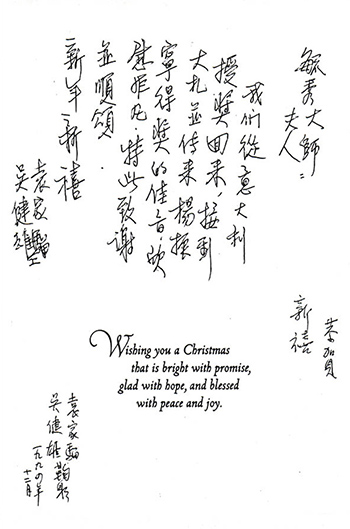 毓秀大師：
夫人
我们從意大利
授奬回来，接到
大札並传来楊振
寧得奬的佳音，欣
慰难凡，特此致谢
並順頌
新年之禧
袁家騮
吴健雄上
恭賀
新禧
Wishing you a Christmas
that is bright with promise,
glad with hope, and blessed
with peace and joy.
袁家騮
吴健雄鞠躬
一九九〇年
十二月